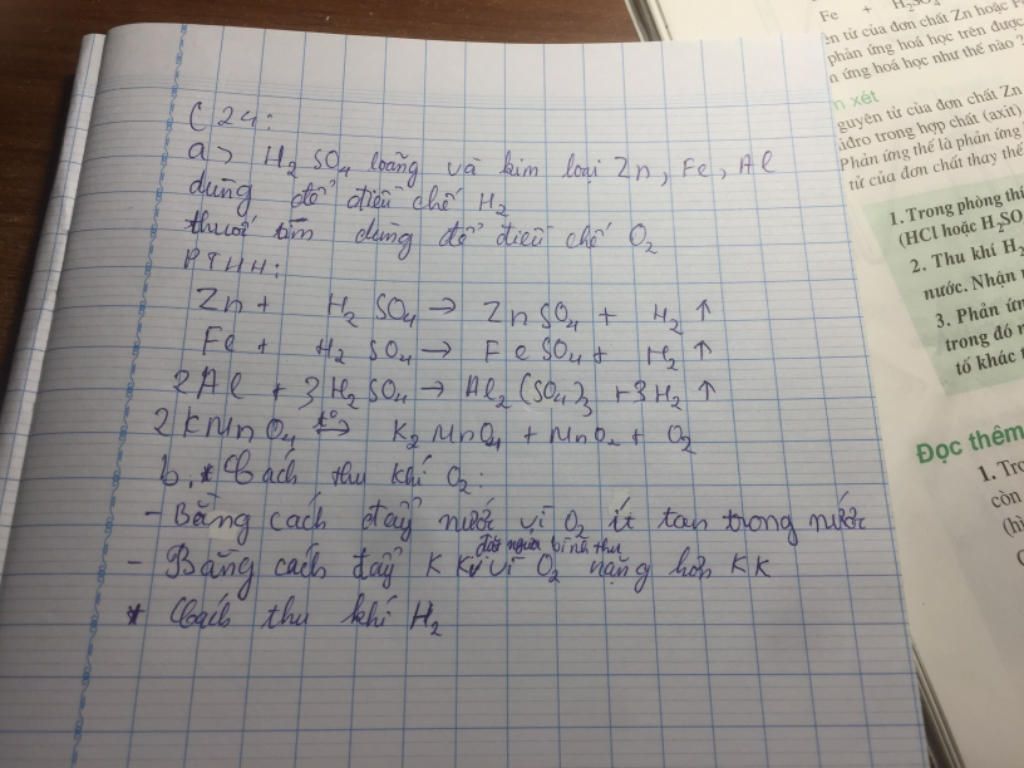 C 24:
a> H2SO4 loãng và kim loại Zn, Fe, Al
dùng để điều chế H2
thuốc tím dùng để điều chế O2
PTHH:
Zn + H2SO4 → ZnSO4 + H2 ↑
Fe + H2SO4 → FeSO4 + H2 ↑
2Al + 3H2SO4 → Al2(SO4)3 + 3H2 ↑
2KMnO4 t° → K2MnO4 + MnO2 + O2
b, * Cách thu khí O2:
- Bằng cách đẩy nước vì O2 ít tan trong nước
đặt ngửa bình thu
- Bằng cách đẩy KK vì O2 nặng hơn KK
* Cách thu khí H2
Fe + H2SO4
ên tử của đơn chất Zn hoặc F
phản ứng hoá học trên được
n ứng hoá học như thế nào ?
n xét
guyên tử của đơn chất Zn
iđro trong hợp chất (axit)
Phản ứng thế là phản ứng
tử của đơn chất thay thế
1. Trong phòng thí
(HCl hoặc H2SO
2. Thu khí H2
nước. Nhận
3. Phản ứn
trong đó n
tố khác t
Đọc thêm
1. Trọ
còn
(hì